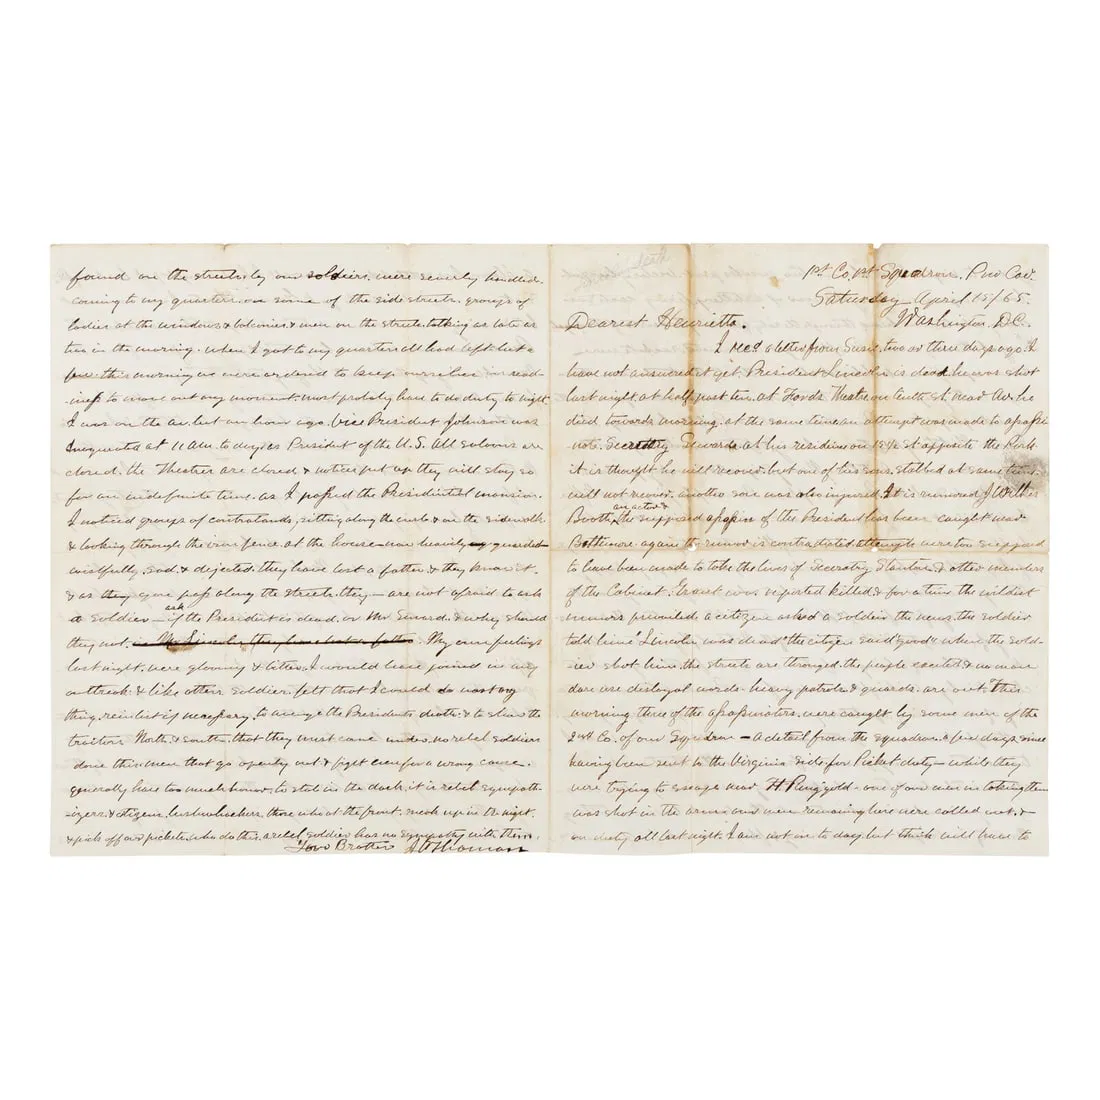 death
1st Co. 1st Squadron. Pro Cav.
Saturday April 15/65.
Washington D.C.
Dearest Henrietta.
I recd a letter from Susie, two or three days ago. I
have not answered it yet. President Lincoln is dead. he was shot
last night at half past ten. at Fords Theatre on tenth st. near Av. he
died towards morning. at the same time an attempt was made to assassi
nate Secretary Sewards at his residence on 15½ st opposite the Park
it is thought he will recover. but one of his sons. stabbed at same time.
will not recover. another son was also injured. It is rumored J Wilkes
Booth, an actor & the supposed assassin of the President has been caught near
Baltimore again the rumor is contradicted attempts were too supposed
to have been made to take the lives of Secretary Stanton & other members
of the Cabinet. Grant was reported killed & for a time the wildest
rumors prevailed a citizen asked a soldier the news. the soldier
told him "Lincoln was dead" the citizen said "good" when the sold-
ier shot him. the streets are thronged. the people excited & no man
dare use disloyal words. heavy patrols & guards. are out. This
morning three of the assassinators. were caught by some men of the
2nd Co. of our Squadron — a detail from the squadron. a few days since
having been sent to the Virginia side for Picket duty — while they
were trying to escape. near H Ringgold - one of our men in taking them
was shot in the arm. our men remaining here were called out. &
on duty all last night. I am not on to day. but think will have to
found on the streets. by our soldiers. were severly handled.
coming to my quarters. on some of the side streets. groups of
ladies at the windows & balconies. & men on the streets. talking as late as
two in the morning. when I got to my quarters all had left. but a
few this morning we were ordered to keep ourselves in read-
iness to move out any moment. most probly have to do duty to night.
I was on the av. but an hour ago. Vice President Johnson was
Inaugurated at 11 a.m. to day, as President of the U.S. All saloons are
closed. the Theatres are closed & notices put up they will stay so
for an indefinite time. as I passed the Presidential mansion.
I noticed groups of contrabands, sitting along the curb & on the sidewalk
& looking through the iron fence. at the house — now heavily guarded —
wistfully. sad. & dejected. they have lost a father & they know it.
& as they pass along the streets. they — are not afraid to ask
a soldier — ask if the President is dead. or Mr Seward. & why should
they not. is Mr Lincoln they have lost a father. My own feelings
last night. were gloomy & bitter. I would have joined in any
outbreak. & like other soldiers. felt that I could do most any
thing. reinlist if necessary. to avenge the Presidents death. & to show the
traitors North. & South. that they must come under. no rebel soldiers
done this. men that go openly out & fight even for a wrong cause.
generally have too much honor. to stab in the dark. it is rebel sympath-
izers. & citizens. bushwhackers. those who at the front. sneak up in the night.
& pick off our pickets. who do this. a rebel soldier has no sympathy with them.
Your Brother J. Thomas